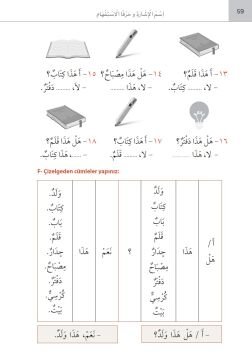 اِسْمُ الْإِشَارَةِ وَ حَرْفَا الِاسْتِفْهَامِ
59
١٣– أَ هَذَا قَلَمٌ؟
– لَا، ........ كِتَابٌ.
١٤– هَلْ هَذَا مِصْبَاحٌ؟
– لَا، هَذَا ........
١٥– أَ هَذَا كِتَابٌ؟
– لَا، ........ دَفْتَرٌ.
١٦– هَلْ هَذَا دَفْتَرٌ؟
– لَا، هَذَا ........
١٧– أَ هَذَا كِتَابٌ؟
– لَا، ........ قَلَمٌ.
١٨– هَلْ هَذَا قَلَمٌ؟
– ........، هَذَا كِتَابٌ.
F- Çizelgeden cümleler yapınız:
أَ /
هَلْ
هَذَا
وَلَدٌ
كِتَابٌ
بَابٌ
قَلَمٌ
جِدَارٌ
مِصْبَاحٌ
دَفْتَرٌ
كُرْسِيٌّ
بَيْتٌ
؟
نَعَمْ
هَذَا
وَلَدٌ.
كِتَابٌ.
بَابٌ.
قَلَمٌ.
جِدَارٌ.
مِصْبَاحٌ.
دَفْتَرٌ.
كُرْسِيٌّ.
بَيْتٌ.
– أَ / هَلْ هَذَا وَلَدٌ؟
– نَعَمْ، هَذَا وَلَدٌ.